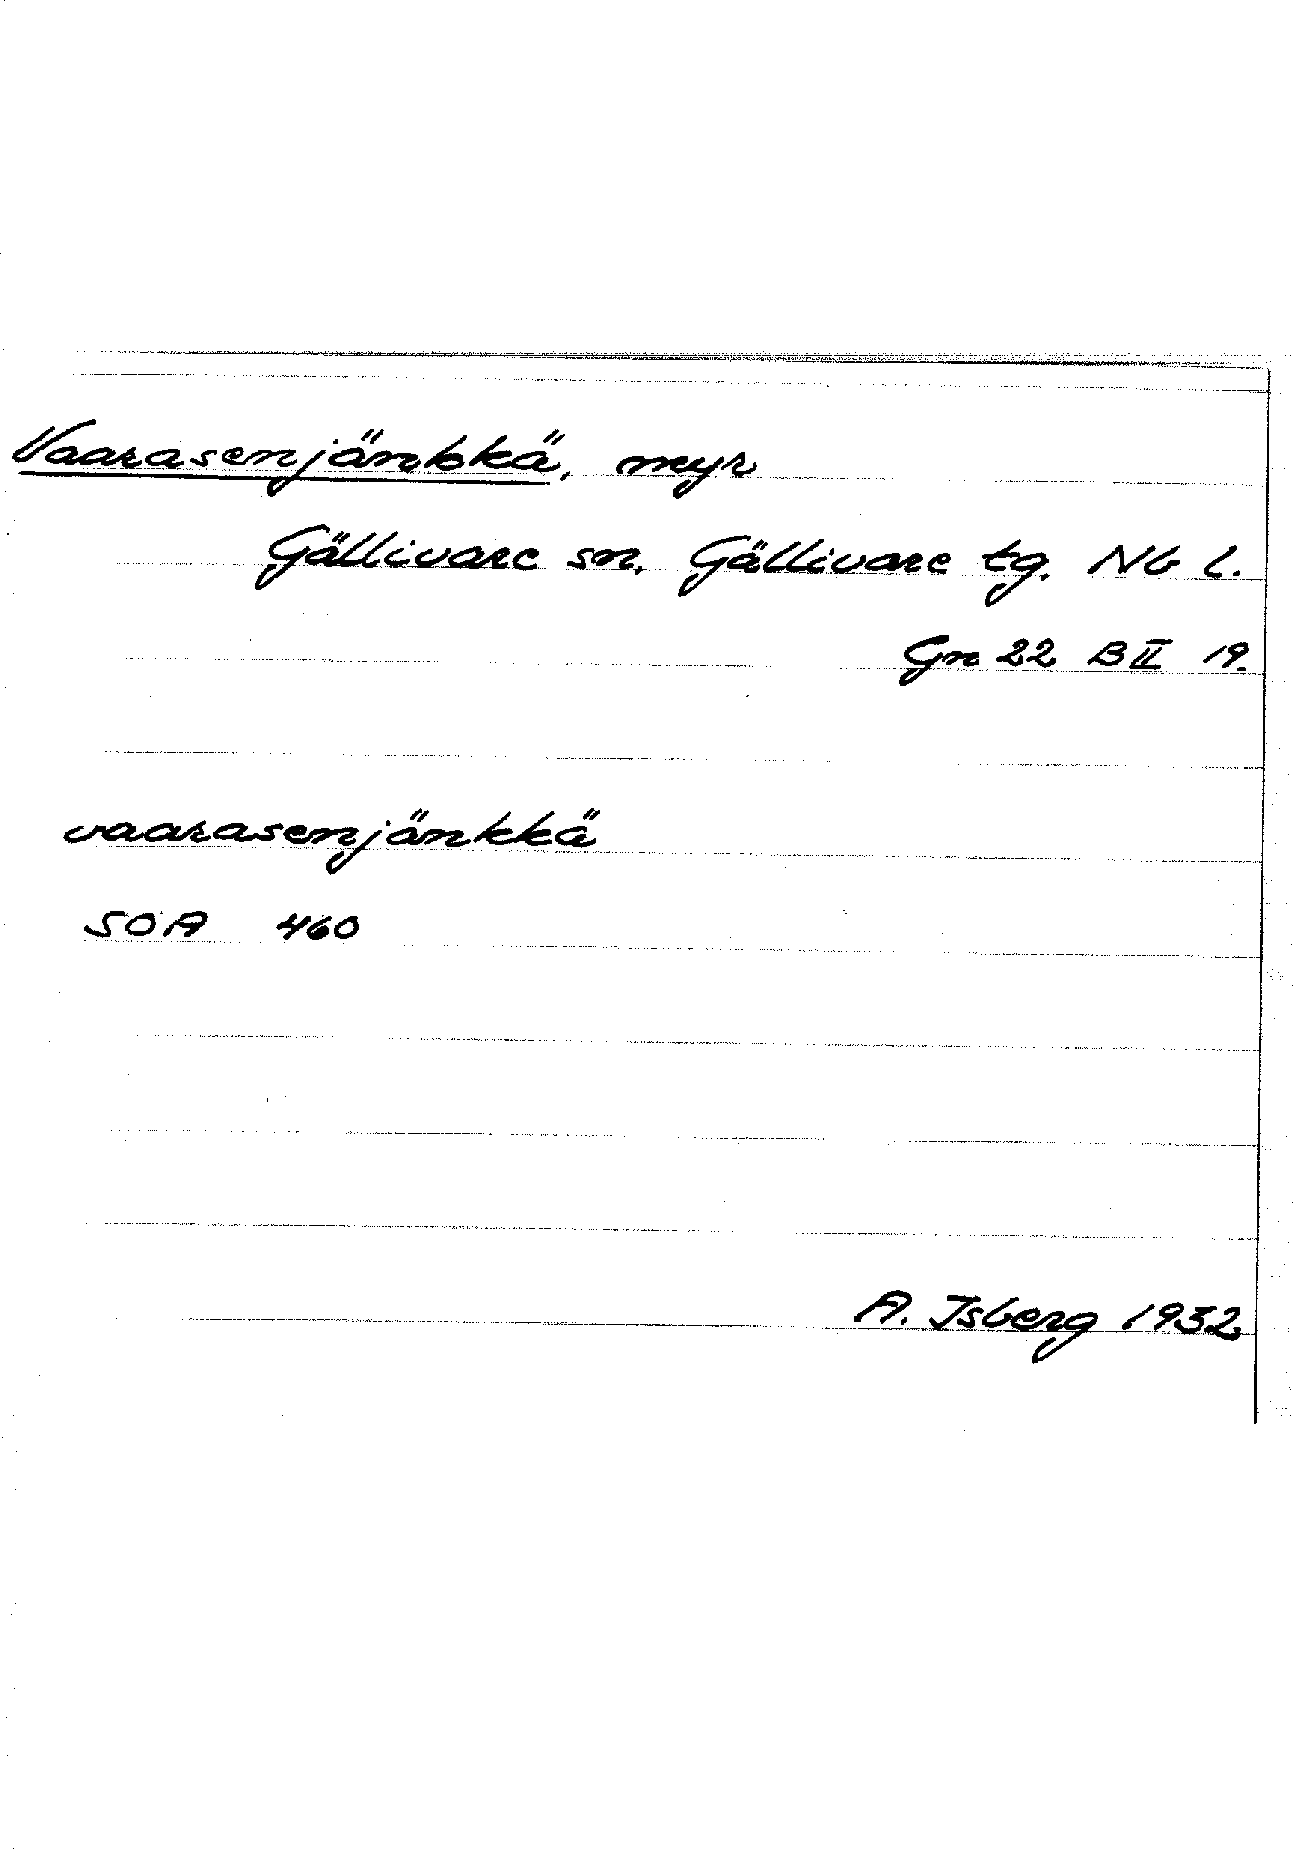 Vaarasenjänkkä, myr
Gällivare sn. Gällivare tg. Nb l.
Gn 22 B II 19.
vaarasenjänkkä
SOA 460
A. Isberg 1932